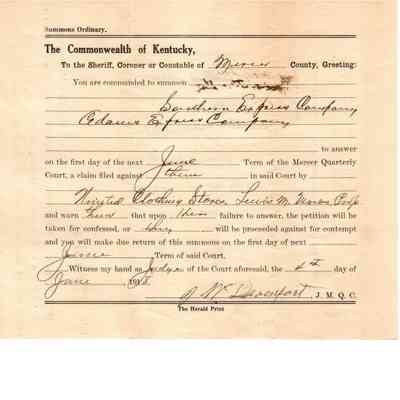 Summons Ordinary.
The Commonwealth of Kentucky,
To the Sheriff, Coroner or Constable of Mercer County, Greeting:
You are commanded to summon
Southern Express Company
Adams Express Company
to answer
on the first day of the next June Term of the Mercer Quarterly
Court, a claim filed against them in said Court by
Clothing Store, Lewis M.
and warn them that upon their failure to answer, the petition will be
taken for confessed, or they will be proceeded against for contempt
and you will make due return of this summons on the first day of next
June Term of said Court.
Witness my hand as Judge of the Court aforesaid, the 4th day of
June
Davenport, J. M. Q. C.
The Herald Print